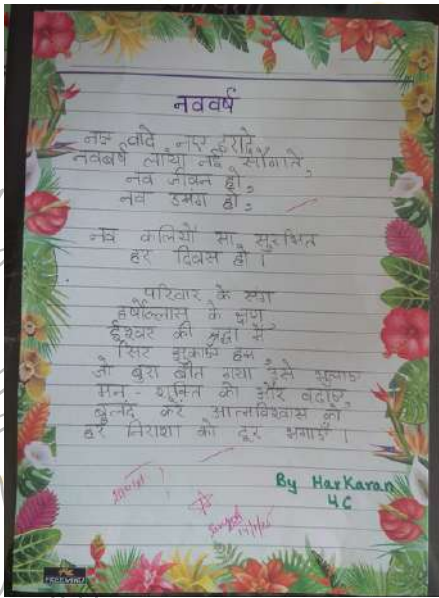 नववर्ष
नए वादे नए इरादे
नववर्ष लाया नई सौगातें,
नव जीवन हो,
नव उमंग हो,
नव कलियों सा सुरभित
हर दिवस हो ।
परिवार के संग
हर्षोल्लास के क्षण
ईश्वर की श्रद्धा में
सिर झुकाएं हम
जो बुरा बीत गया उसे भुलाएं
मन - शक्ति को और बढ़ाएं,
बुलंद करें आत्मविश्वास को
हर निराशा को दूर भगाएँ ।
By HarKaran
4C
FREEMIND